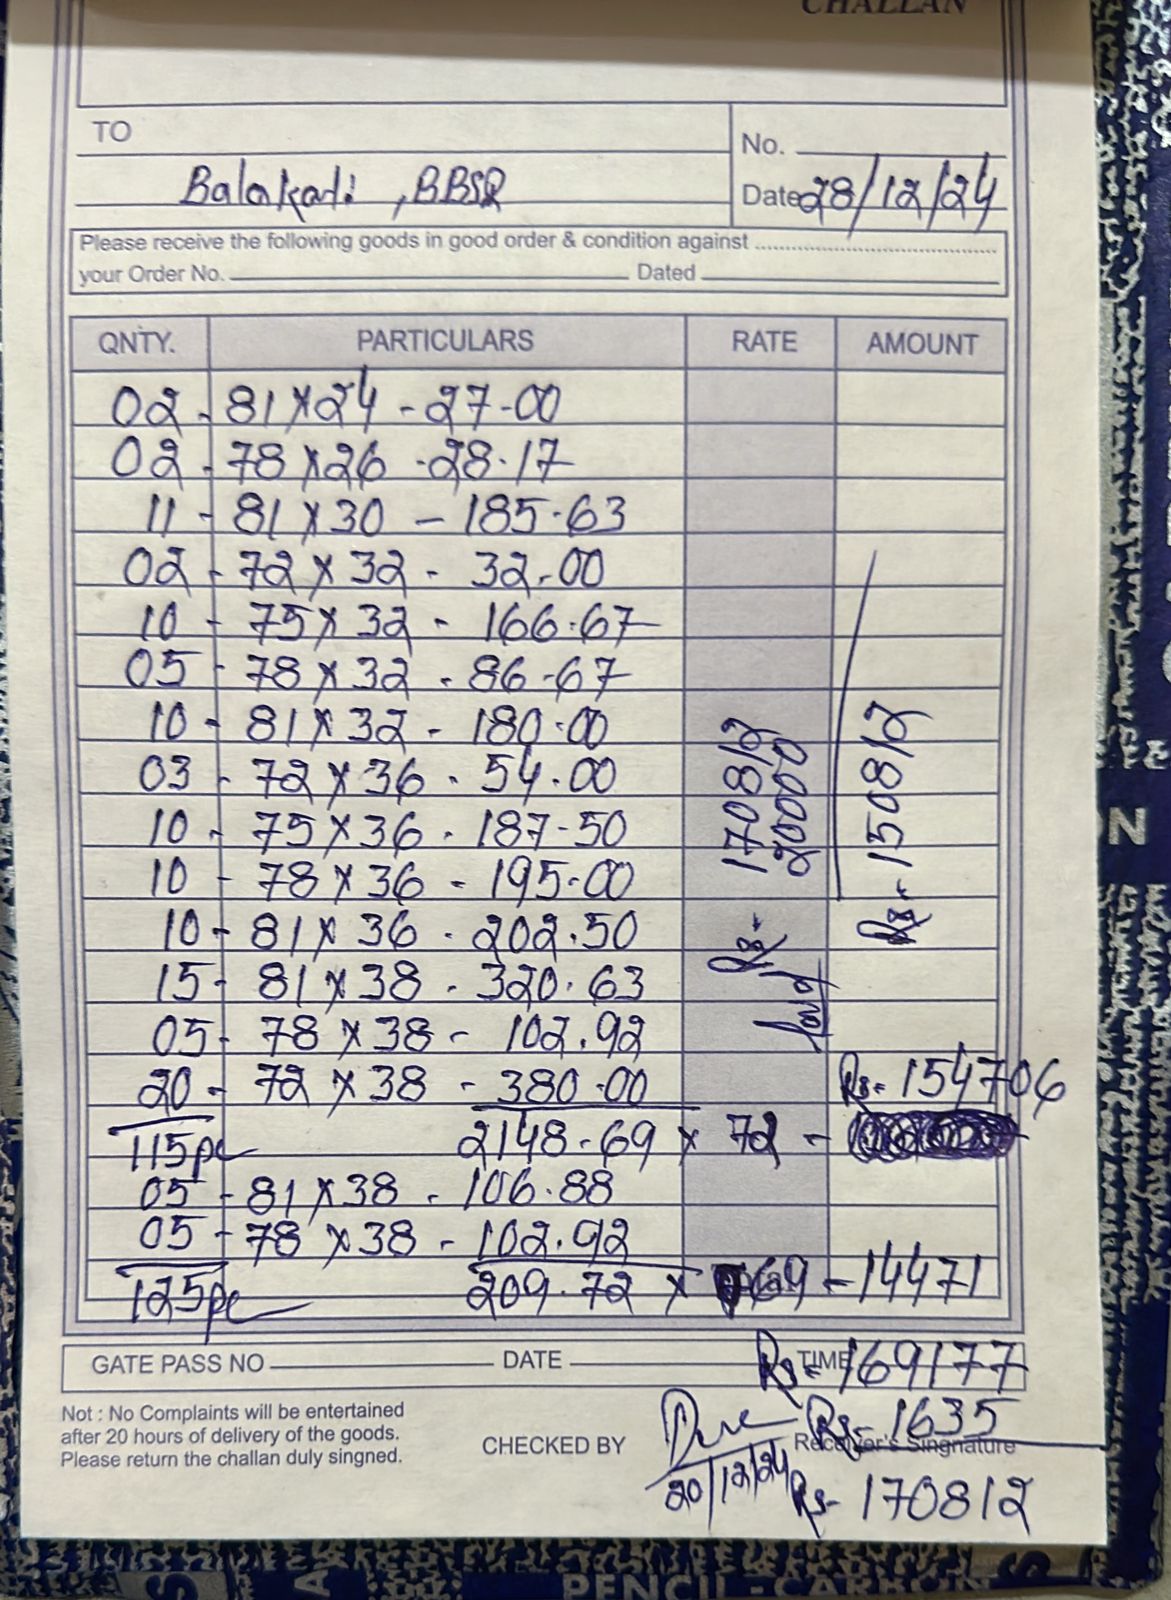 CHALLAN
TO
No.
Balakati, BBSR
Date 28/12/24
Please receive the following goods in good order & condition against
your Order No. Dated
QNTY. PARTICULARS RATE AMOUNT
02 - 81 x 24 - 27-00
02 - 78 x 26 - 28.17
11 - 81 x 30 - 185.63
02 - 72 x 32 - 32.00
10 - 75 x 32 - 166.67
05 - 78 x 32 - 86-67
10 - 81 x 32 - 180.00
03 - 72 x 36 - 54.00
10 - 75 x 36 - 187-50
10 - 78 x 36 - 195.00
10 - 81 x 36 - 202.50
15 - 81 x 38 - 320.63
05 - 78 x 38 - 102.92
20 - 72 x 38 - 380.00
Rs- 170812
20000
Rs- 150812
Rs- 154706
115pc 2148.69 x 72 -
05 - 81 x 38 - 106.88
05 - 78 x 38 - 102.92
125pc 209.72 x 69 - 14471
GATE PASS NO DATE TIME
Rs- 169177
Not : No Complaints will be entertained
after 20 hours of delivery of the goods.
Please return the challan duly singned.
CHECKED BY
Due Rs- 1635
Receiver's Singnature
20/12/24 Rs- 170812
PENCIL CARBON